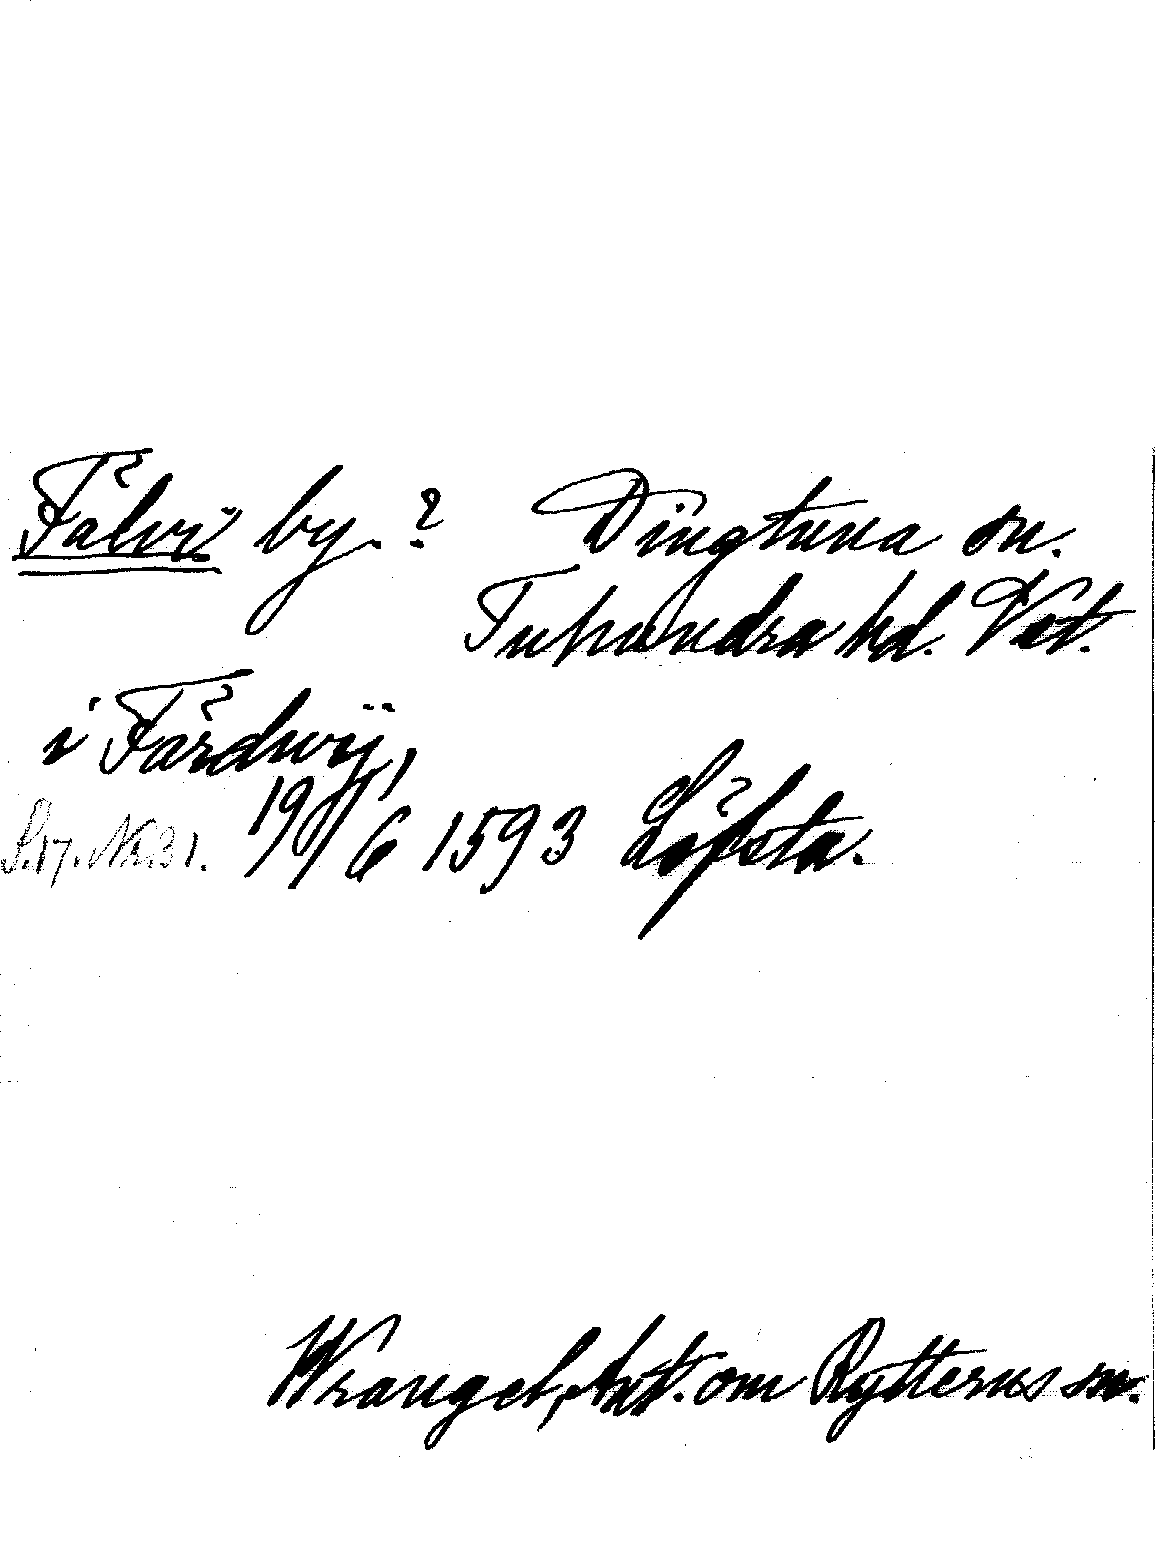 Fålvi by.? Dingtuna sn.
Tuhundra hd. Vst.
i Fårdwij,
S.17. Nr.31. 19/6 1593 Löfsta.
Wrangel, Ant. om Rytterns sn.